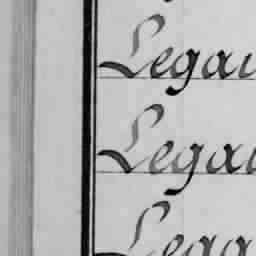 Legai
Legai
Lega